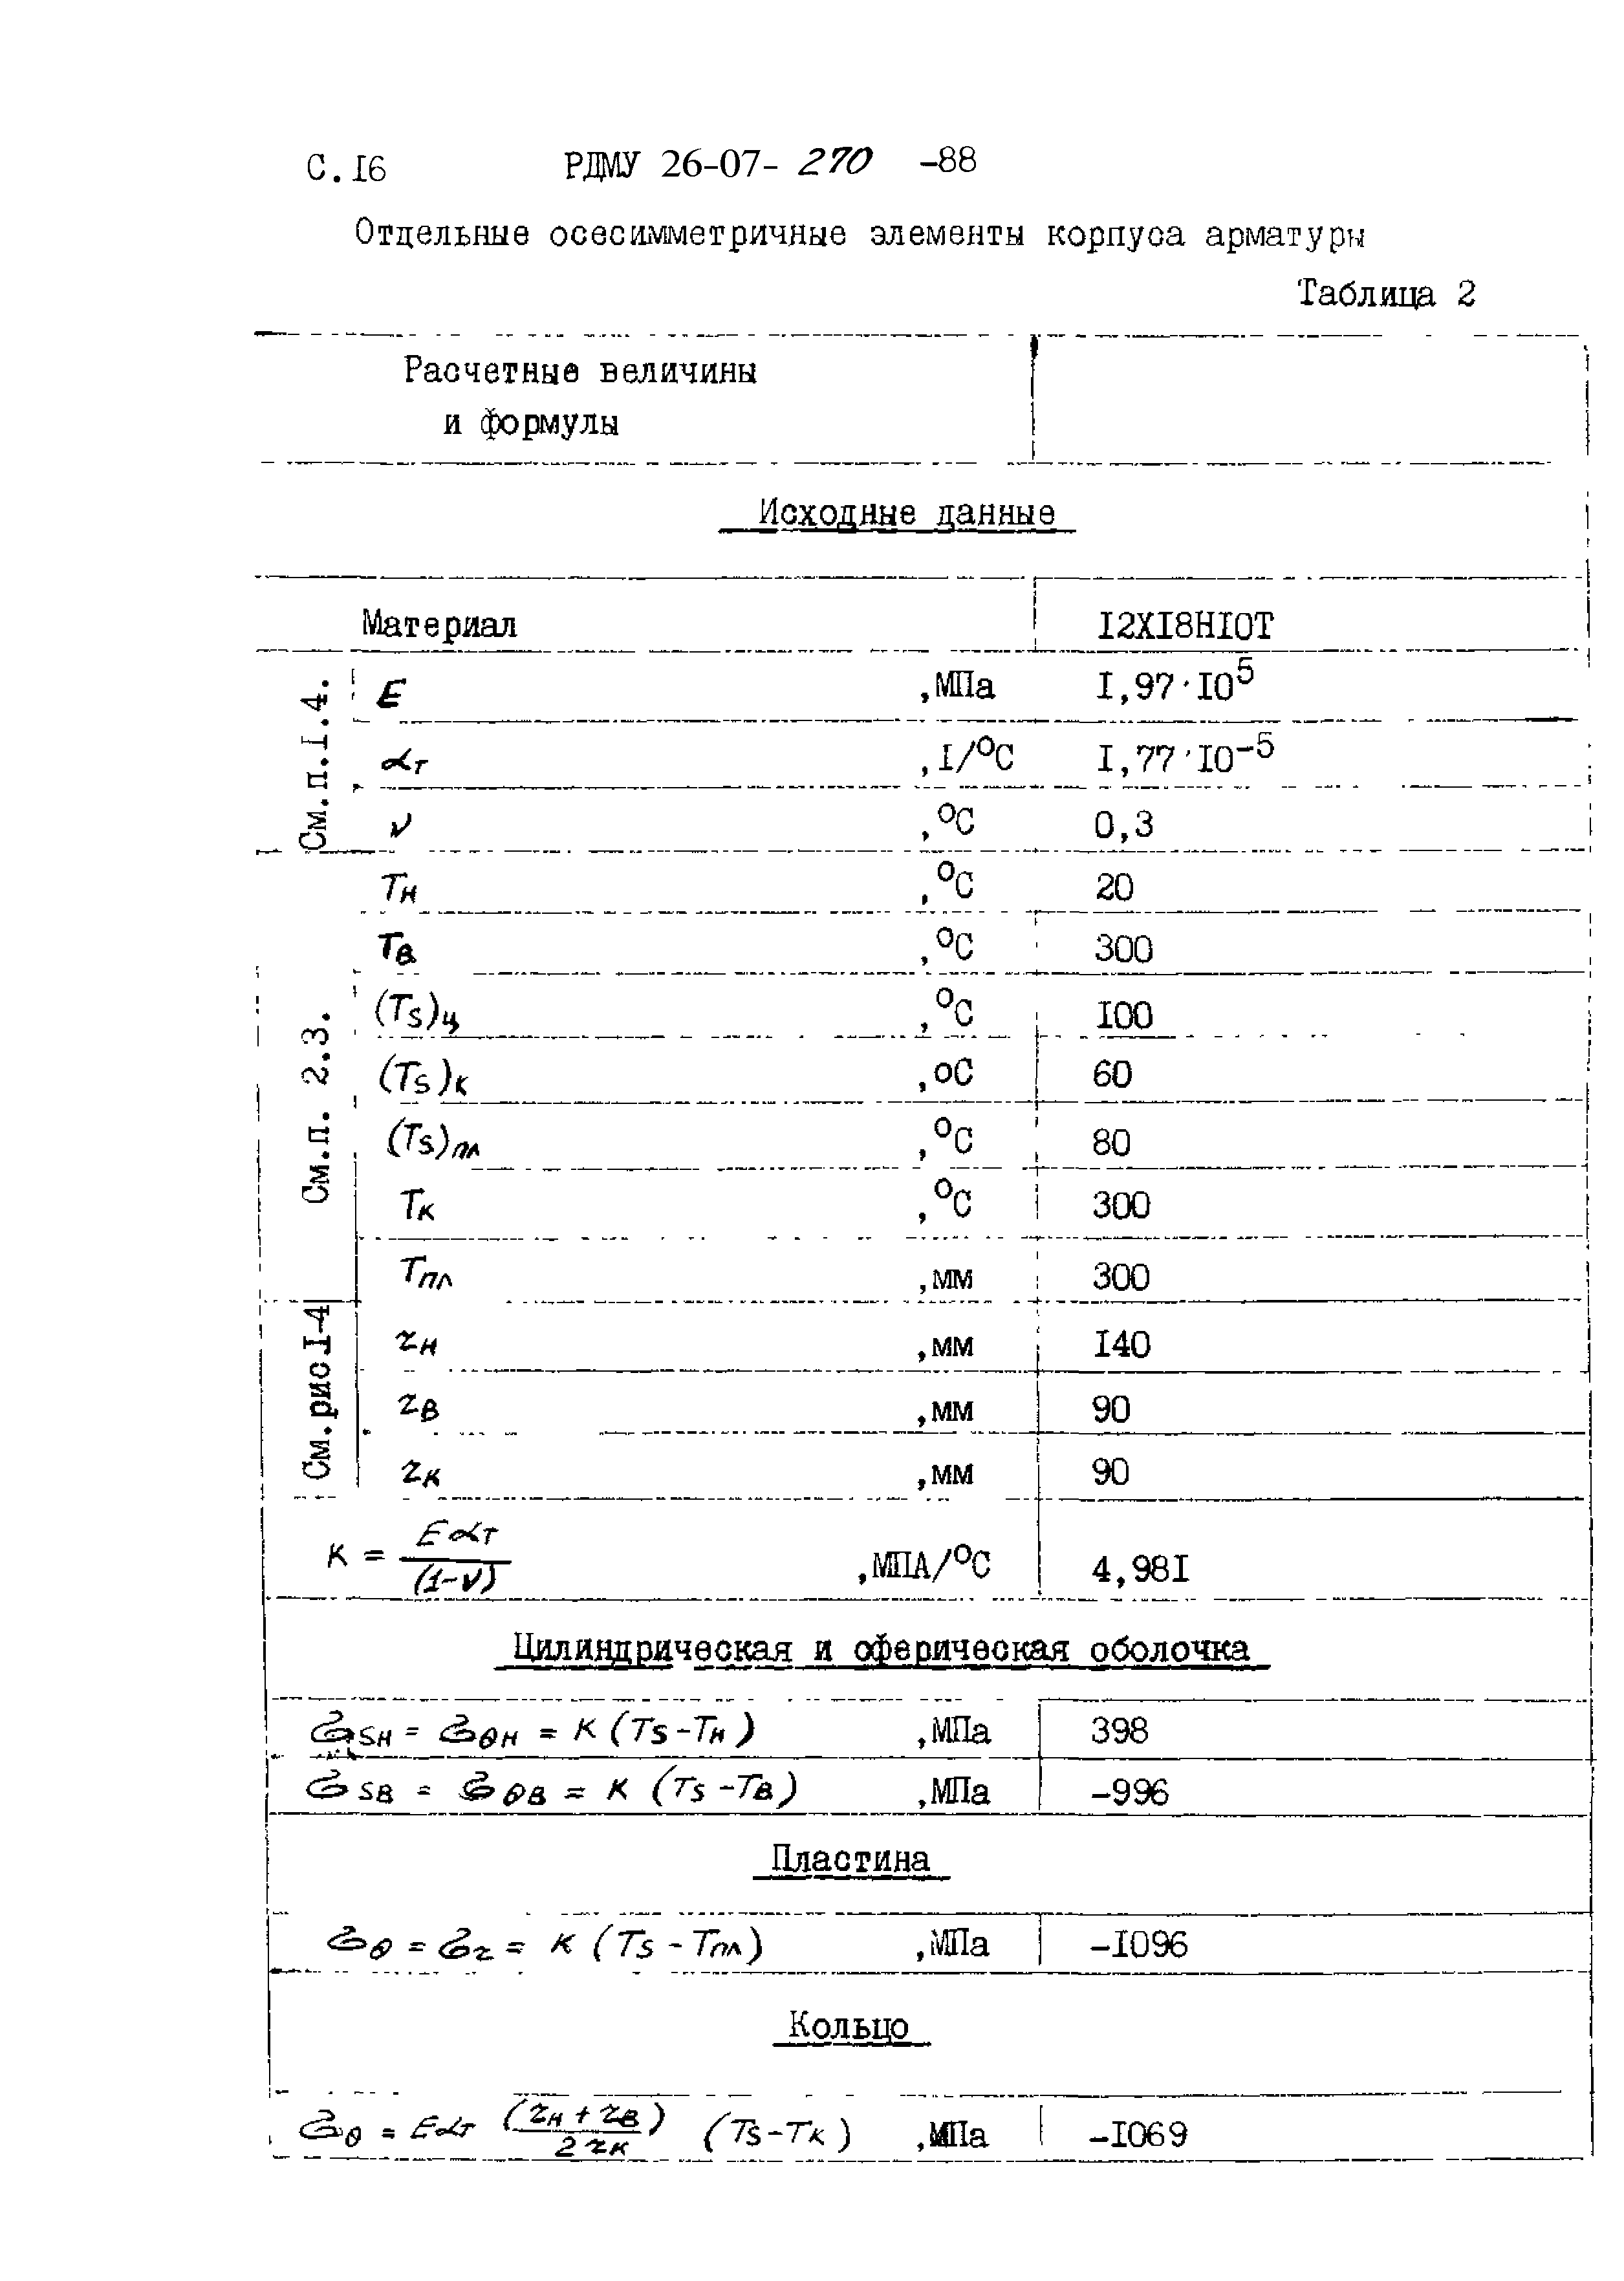 С.I6 РДМУ 26-07- 270 -88
Отдельные осесимметричные элементы корпуса арматуры
Таблица 2
Расчетные величины
и формулы
Исходные данные
Материал I2XI8HIOT
См.п.I.4.
E ,МПа I,97·IO⁵
αт ,I/°C I,77·IO⁻⁵
ν ,°C 0,3
См.п. 2.3.
Tн ,°C 20
Tв ,°C 300
(Ts)ц ,°C IOO
(Ts)к ,оС 60
(Ts)пл ,°C 80
Tк ,°C 300
Tпл ,мм 300
См.рис I-4
rн ,мм I40
rв ,мм 90
rк ,мм 90
K = Eαт / (1-ν) ,МПА/°C 4,98I
Цилиндрическая и сферическая оболочка
σsн = σθн = K (Ts-Tн) ,МПа 398
σsв = σθв = K (Ts-Tв) ,МПа -996
Пластина
σθ = σr = K (Ts-Tпл) ,МПа -IO96
Кольцо
σθ = Eαт (rн+rв) / 2rк (Ts-Tк) ,МПа -IO69